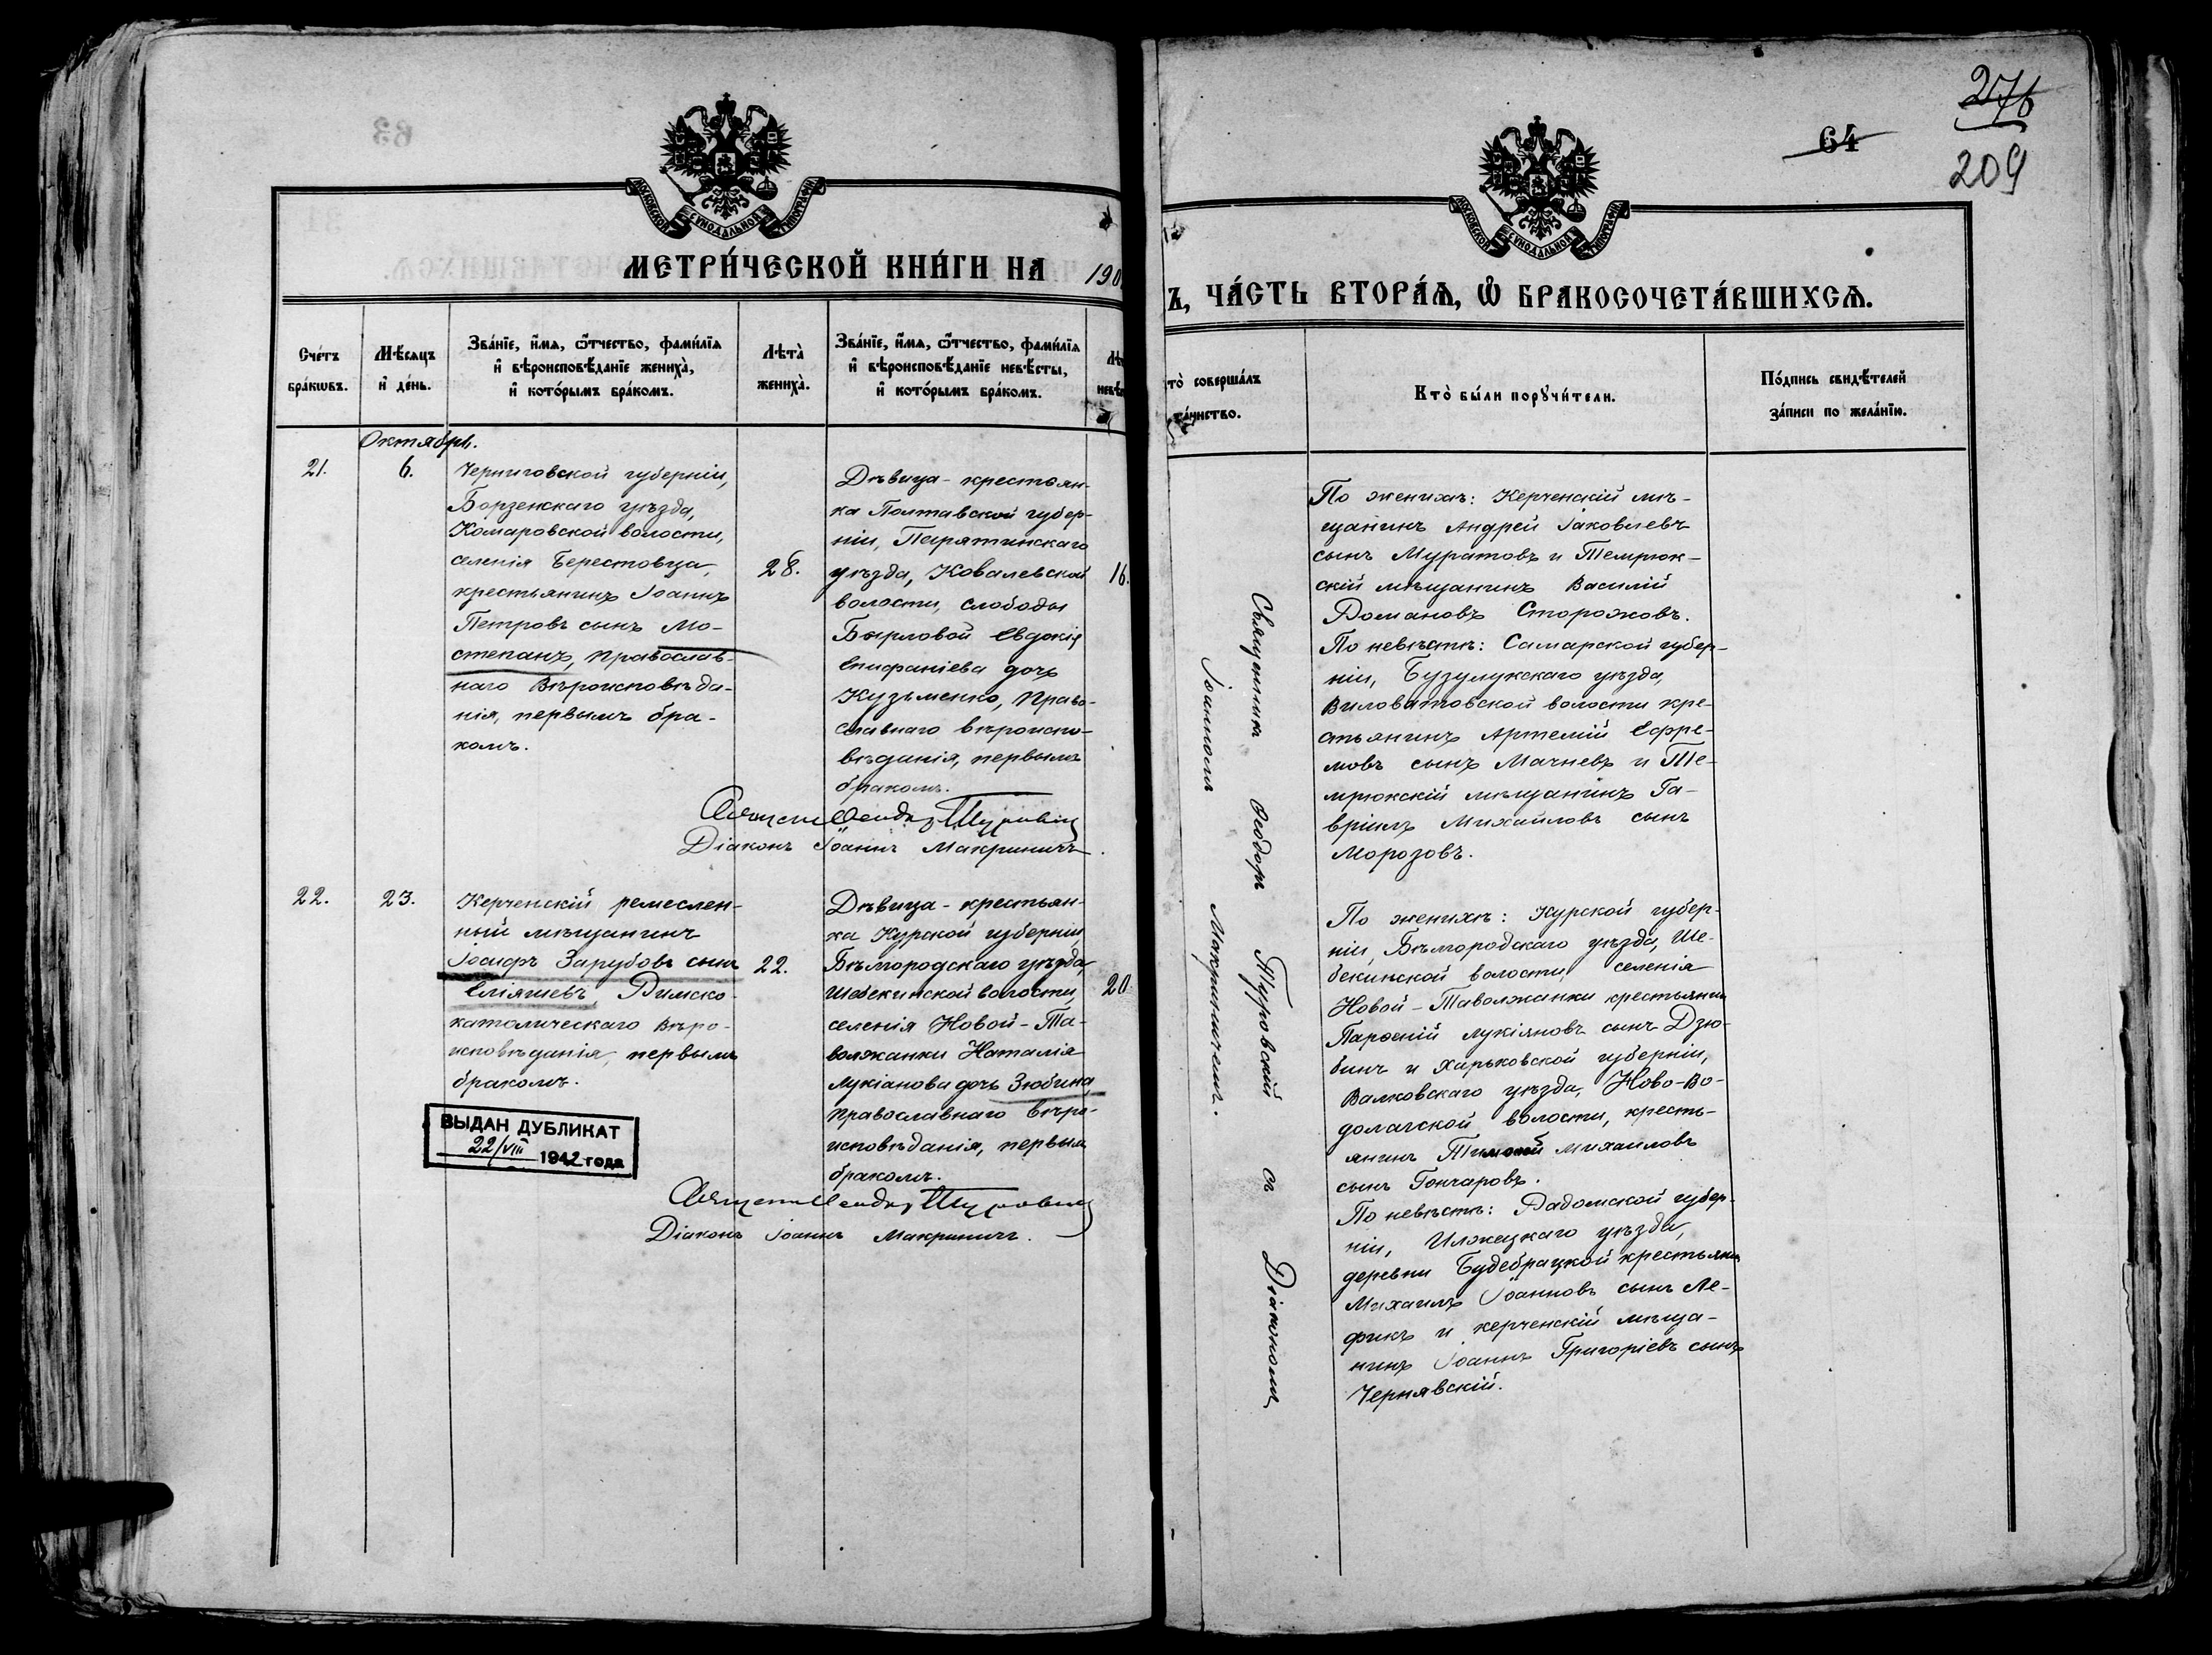 276
64
209
МЕТРИ́ЧЕСКОЙ КНИ́ГИ НА 190
Ъ, ЧА́СТЬ ВТОРА́Ѧ, Ѡ БРАКОСОЧЕТА́ВШИХСѦ.
Сче́тъ бра́кѡвъ.
Мѣ́сяцъ и҆ де́нь.
Зва́нїе, и҆́мѧ, ѻ҆́тчество, фами́лїѧ
и҆ вѣроисповѣ́данїе жениха̀,
и҆ кото́рымъ бра́комъ.
Лѣта̀ жениха̀.
Зва́нїе, и҆́мѧ, ѻ҆́тчество, фами́лїѧ
и҆ вѣроисповѣ́данїе невѣ́сты,
и҆ кото́рымъ бра́комъ.
то̀ соверша́лъ
та́инство.
Кто̀ бы́ли порꙋчи́тели.
По́дпись свидѣ́телей
за́писи по жела́нїю.
Октябрь.
21.
6.
Черниговской губерніи,
Борзенскаго уѣзда,
Комаровской волости,
селенія Берестовца,
крестьянинъ Іоаннъ
Петровъ сынъ Мо-
степанъ, православ-
наго вѣроисповѣда-
нія, первымъ бра-
комъ.
28.
Дѣвица - крестьян-
ка Полтавской губер-
ніи, Пирятинскаго
уѣзда, Ковалевской
волости, слободы
Бырловой Евдокія
Епифаніева дочь
Кузьменко, право-
славнаго вѣроиспо-
вѣданія, первымъ
бракомъ.
16.
Діаконъ Іоаннъ Макриничъ.
Священникъ Ѳеодоръ Туровскій съ Діакономъ
Іоанномъ Макриничемъ.
По женихѣ: Керченскій мѣ-
щанинъ Андрей Іаковлевъ
сынъ Муратовъ и Темрюк-
скій мѣщанинъ Василій
Романовъ Сторожовъ.
По невѣстѣ: Самарской губер-
ніи, Бузулукскаго уѣзда,
Виловатовской волости кре-
стьянинъ Артемій Ефре-
мовъ сынъ Мачневъ и Те-
мрюкскій мѣщанинъ Га-
вріилъ Михайловъ сынъ
Морозовъ.
22.
23.
Керченскій ремеслен-
ный мѣщанинъ
Іосифъ Зарубовъ сынъ
Еліяшевъ, Римско-
католическаго вѣро-
исповѣданія, первымъ
бракомъ.
22.
Дѣвица - крестьян-
ка Курской губерніи,
Бѣлгородскаго уѣзда,
Шебекинской волости,
селенія Новой-Та-
волжанки Наталія
Лукіанова дочь Зюбина,
православнаго вѣро-
исповѣданія, первымъ
бракомъ.
20
Діаконъ Іоаннъ Макриничъ.
ВЫДАН ДУБЛИКАТ
22/VIII 1942 года
По женихѣ: Курской губер-
ніи, Бѣлгородскаго уѣзда, Ше-
бекинской волости, селенія
Новой-Таволжанки крестьянинъ
Парѳеній Лукіяновъ сынъ Дзю-
бинъ и Харьковской губерніи,
Валковскаго уѣзда, Ново-Во-
долагской волости, кресть-
янинъ Тимоѳей Михаиловъ
сынъ Гончаровъ.
По невѣстѣ: Радомской губер-
ніи, Илжецкаго уѣзда,
деревни крестьянинъ
Михаилъ Іоанновъ сынъ Ле-
фикъ и керченскій мѣща-
нинъ Іоаннъ Григоріевъ сынъ
Чернявскій.